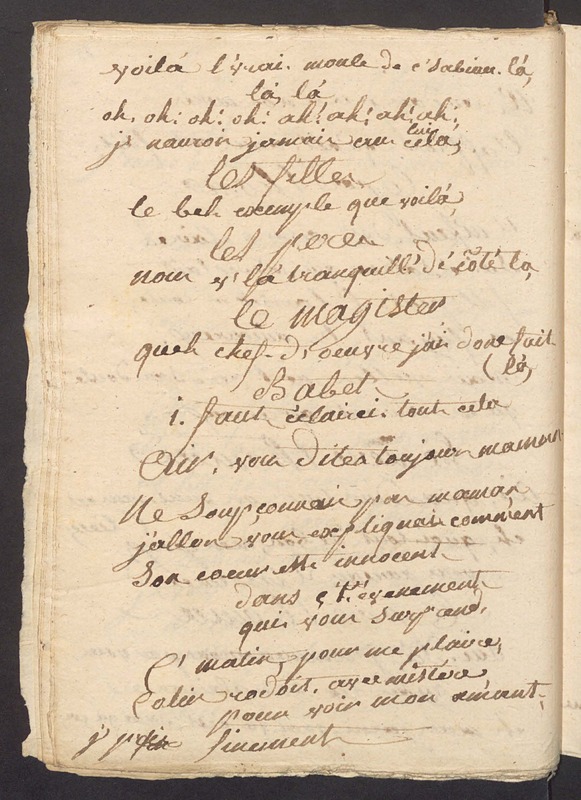 voilà l'vrai. monde de c'sabian. là,
là, là
oh. oh. oh! oh! ah! ah! ah! ah!
j' nauron jamais cru cela,
les filles
le bel exemple que voilà,
les peres
nous v'la tranquill' dé côté la,
le magister
quel chef-d'oeuvre j'ai donc fait
(là,
Babet
i. faut éclairci. tout cela
air, vous dites toujour maman
Ne Soupçonnais pas maman
j'allon vous expliquais comment
Son coeur est innocent
dans c't'évenement
qui vous surprend,
C' matin, pour me plaire,
Colin rodoit, avec mistere,
pour voir mon amant,
finement